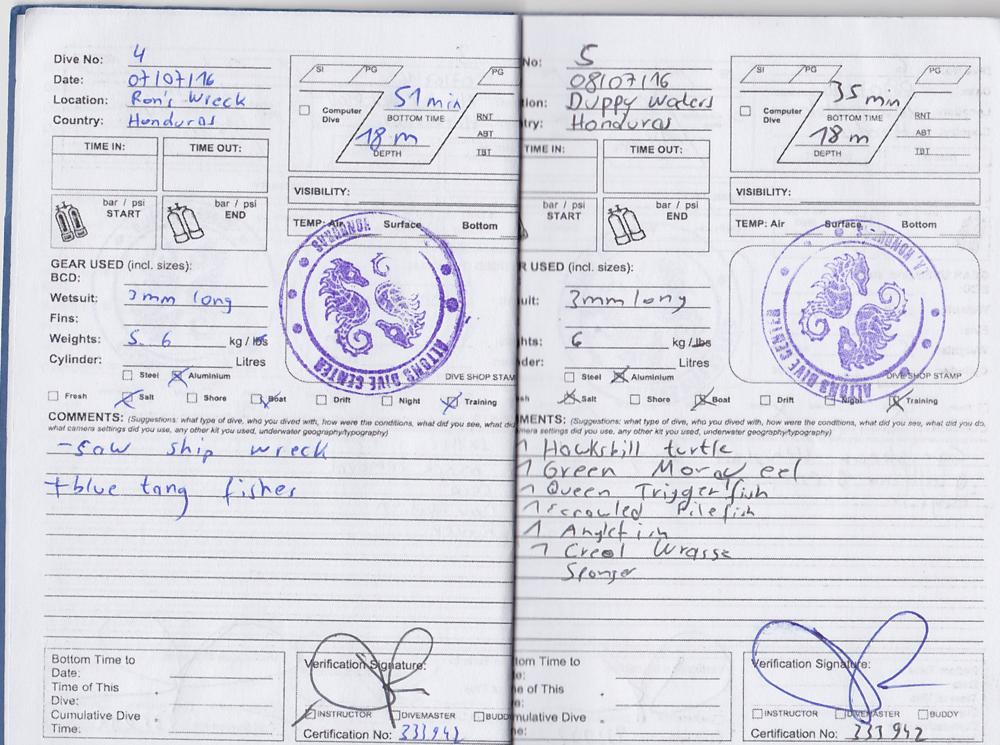 Dive No: 4
Date: 07/07/16
Location: Ron's Wreck
Country: Honduras
SI PG PG
Computer Dive
51 min
BOTTOM TIME
18 m
DEPTH
RNT
ABT
TBT
TIME IN: TIME OUT:
VISIBILITY:
bar / psi START
bar / psi END
TEMP: Air Surface Bottom
GEAR USED (incl. sizes):
BCD:
Wetsuit: 3mm long
Fins:
Weights: 5 6 kg / lbs
Cylinder: Litres
Steel Aluminium
HONDURAS
ALTONS DIVE CENTER
DIVE SHOP STAMP
Fresh Salt Shore Boat Drift Night Training
COMMENTS: (Suggestions: what type of dive, who you dived with, how were the conditions, what did you see, what did
what camera settings did you use, any other kit you used, underwater geography/typography)
- saw ship wreck
+ blue tang fishes
Bottom Time to
Date:
Time of This
Dive:
Cumulative Dive
Time:
Verification Signature:
INSTRUCTOR DIVEMASTER BUDD
Certification No: 333942
No: 5
08/07/16
tion: Duppy Waters
try: Honduras
SI PG PG
Computer Dive
35 min
BOTTOM TIME
18 m
DEPTH
RNT
ABT
TBT
TIME IN: TIME OUT:
VISIBILITY:
bar / psi START
bar / psi END
TEMP: Air Surface Bottom
R USED (incl. sizes):
uit: 3mm long
hts: 6 kg / lbs
der: Litres
Steel Aluminium
ALTONS DIVE CENTER
DIVE SHOP STAMP
sh Salt Shore Boat Drift Night Training
MENTS: (Suggestions: what type of dive, who you dived with, how were the conditions, what did you see, what did you do,
mera settings did you use, any other kit you used, underwater geography/typography)
1 Hawksbill turtle
1 Green Moray eel
1 Queen Triggerfish
1 scrawled Filefish
1 Anglefish
1 Creol Wrasse
Sponger
tom Time to
e of This
mulative Dive
e:
Verification Signature:
INSTRUCTOR DIVEMASTER BUDDY
Certification No: 333942